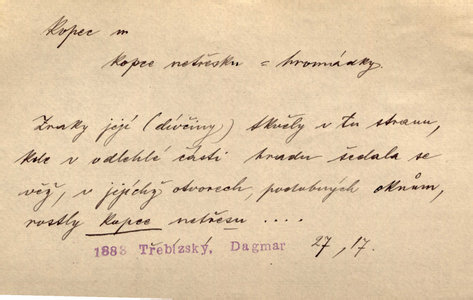 Kopec m
kopce netřesku = hromádky
Zraky její (dívčiny) tkvěly v tu stranu,
kde v odlehlé části hradu šedala se
věž, v jejíchž otvorech, podobných oknům,
rostly kopce netřesu ....
1883 Třebízský, Dagmar 27, 17.